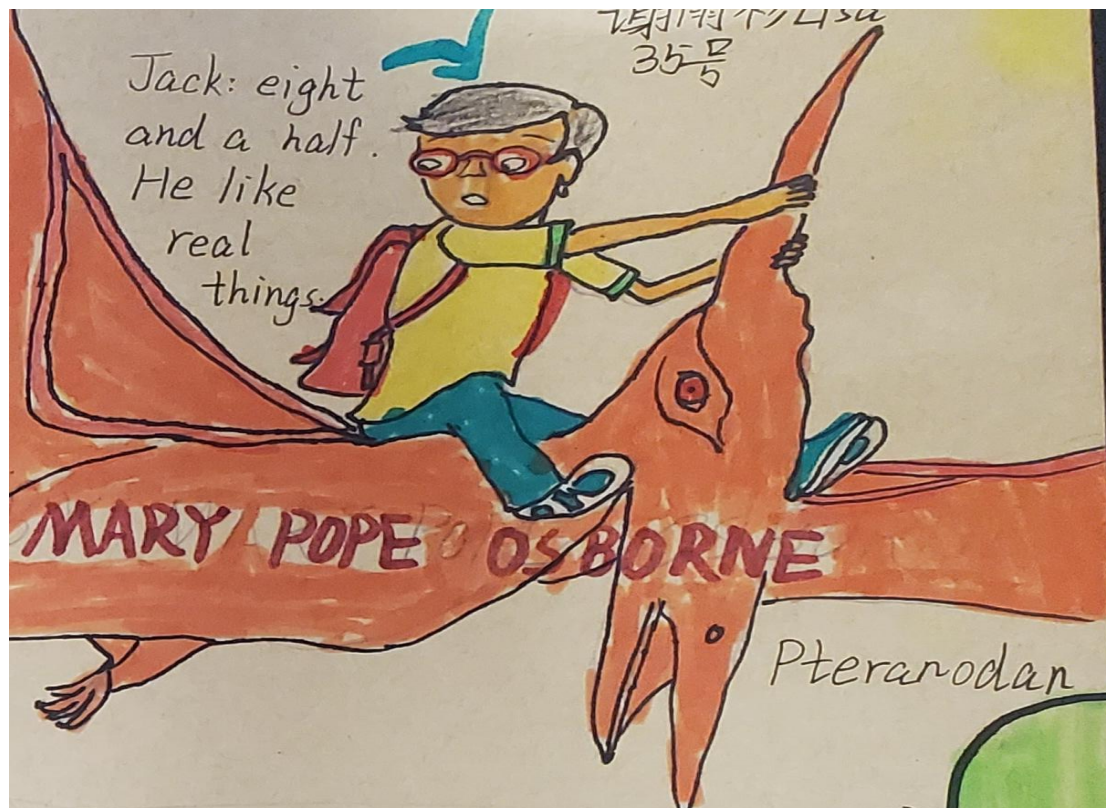 谢雨衫Lisa
35号
Jack: eight
and a half.
He like
real
things.
MARY POPE OSBORNE
Pteranodan